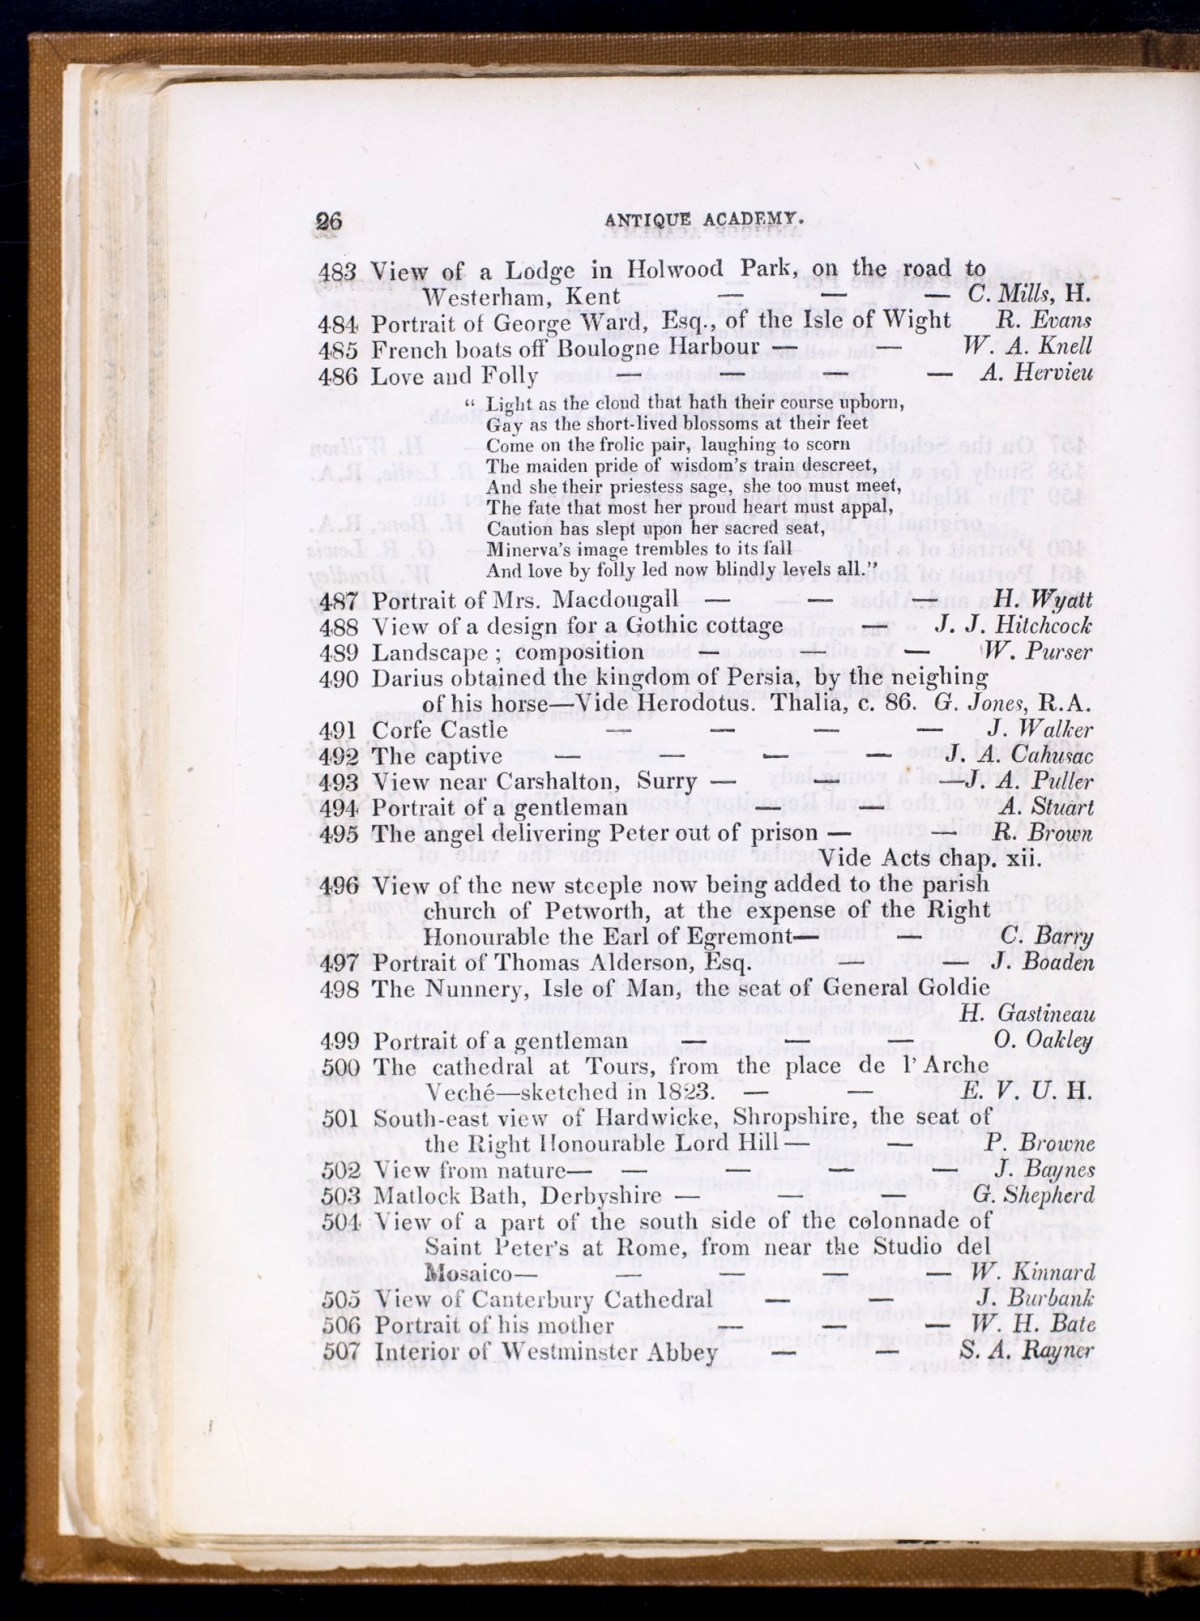 26 ANTIQUE ACADEMY.
483 View of a Lodge in Holwood Park, on the road to
Westerham, Kent — — — C. Mills, H.
484 Portrait of George Ward, Esq., of the Isle of Wight R. Evans
485 French boats off Boulogne Harbour — — W. A. Knell
486 Love and Folly — — — — A. Hervieu
“ Light as the cloud that hath their course upborn,
Gay as the short-lived blossoms at their feet
Come on the frolic pair, laughing to scorn
The maiden pride of wisdom's train descreet,
And she their priestess sage, she too must meet,
The fate that most her proud heart must appal,
Caution has slept upon her sacred seat,
Minerva's image trembles to its fall
And love by folly led now blindly levels all.”
487 Portrait of Mrs. Macdougall — — — H. Wyatt
488 View of a design for a Gothic cottage — J. J. Hitchcock
489 Landscape ; composition — — — W. Purser
490 Darius obtained the kingdom of Persia, by the neighing
of his horse—Vide Herodotus. Thalia, c. 86. G. Jones, R.A.
491 Corfe Castle — — — — J. Walker
492 The captive — — — — J. A. Cahusac
493 View near Carshalton, Surry — — —J. A. Puller
494 Portrait of a gentleman — — A. Stuart
495 The angel delivering Peter out of prison — — R. Brown
Vide Acts chap. xii.
496 View of the new steeple now being added to the parish
church of Petworth, at the expense of the Right
Honourable the Earl of Egremont— — C. Barry
497 Portrait of Thomas Alderson, Esq. — — J. Boaden
498 The Nunnery, Isle of Man, the seat of General Goldie
H. Gastineau
499 Portrait of a gentleman — — — O. Oakley
500 The cathedral at Tours, from the place de l'Arche
Veché—sketched in 1823. — — E. V. U. H.
501 South-east view of Hardwicke, Shropshire, the seat of
the Right Honourable Lord Hill— — P. Browne
502 View from nature— — — — — J. Baynes
503 Matlock Bath, Derbyshire — — — G. Shepherd
504 View of a part of the south side of the colonnade of
Saint Peter's at Rome, from near the Studio del
Mosaico— — — — — W. Kinnard
505 View of Canterbury Cathedral — — J. Burbank
506 Portrait of his mother — — — W. H. Bate
507 Interior of Westminster Abbey — — S. A. Rayner